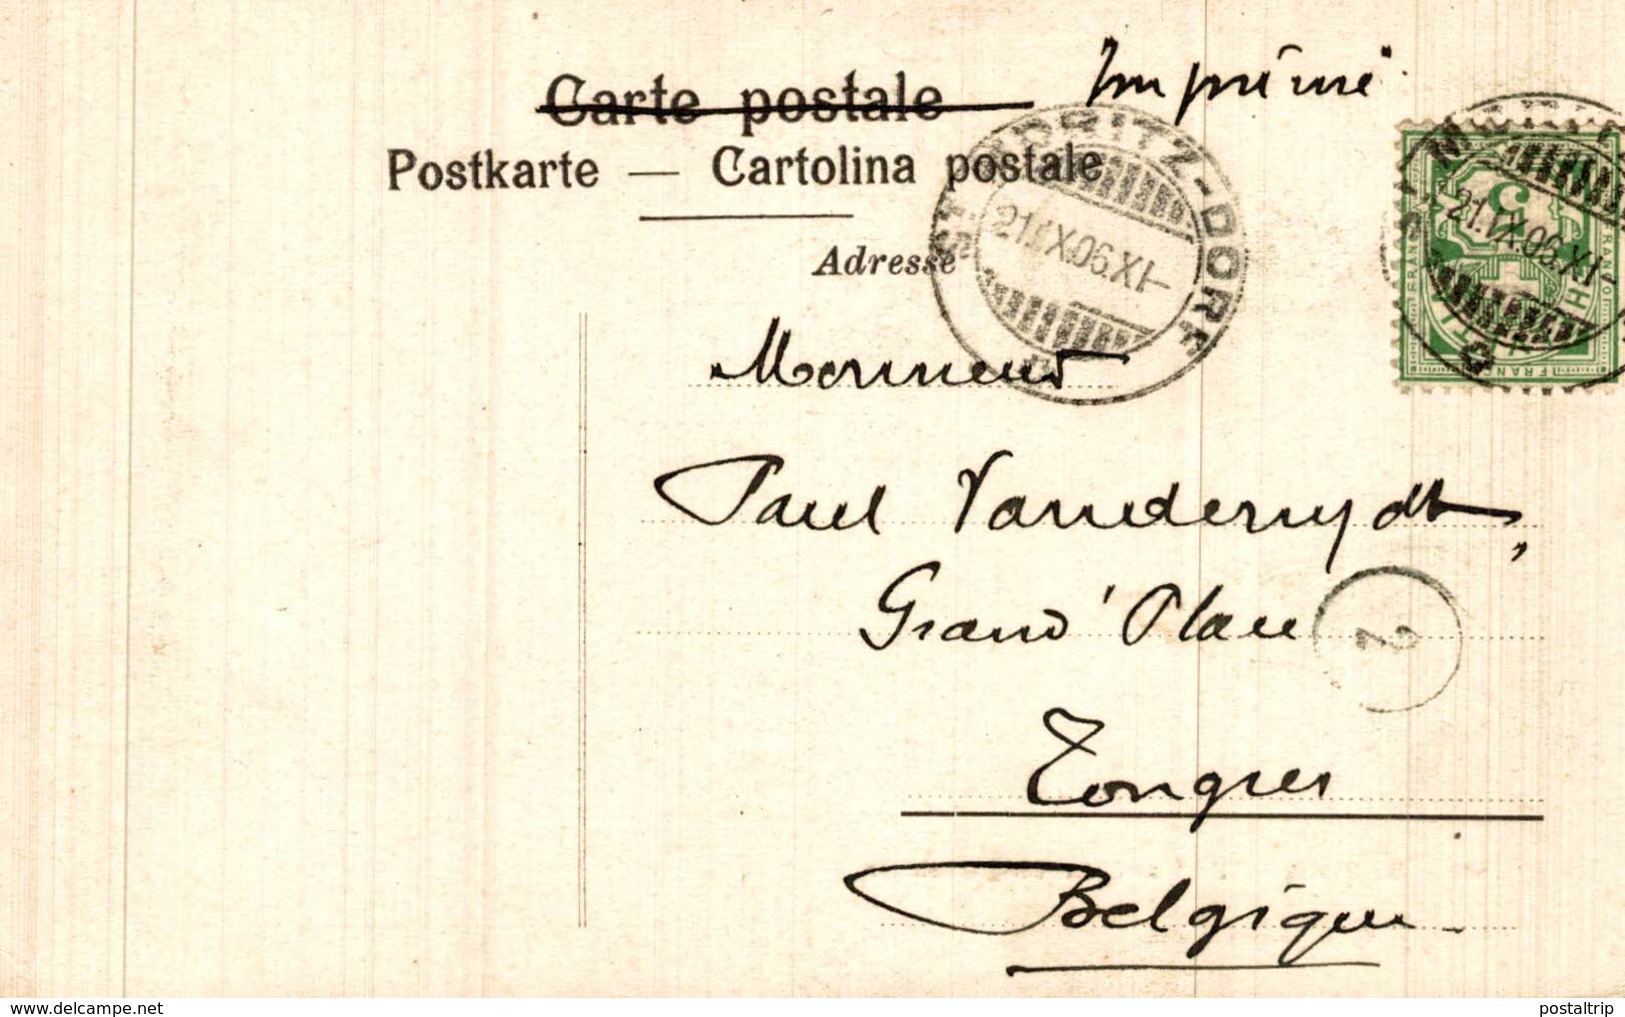 Imprimé
Carte postale
Postkarte — Cartolina postale
Adresse
ST. MORITZ-DORF
21.IX.06.XI-
MORITZ
21.IX.06.XI-
5
FRANCO
FRANCO
HELVETIA
Monsieur
Paul Vanderrydt,
Grand' Place
2
Tongres
Belgique.
www.delcampe.net
postaltrip